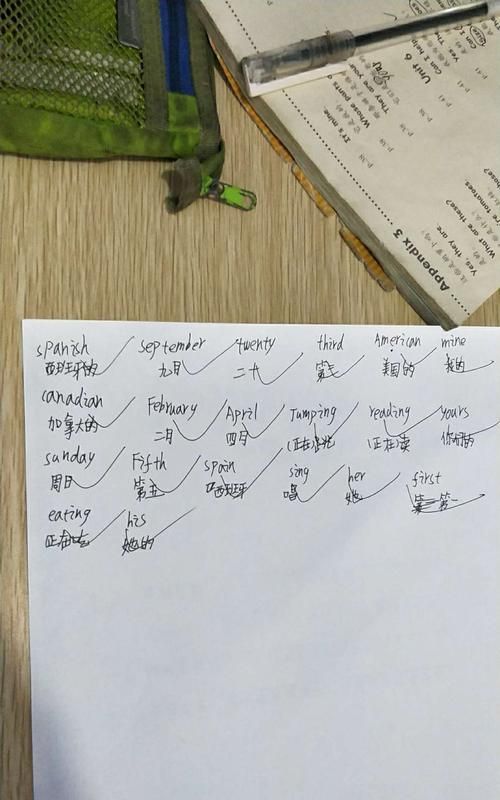 Appendix 3
Unit 6
It's mine.
Whose pants
They are your
Can I
What are these?
Yes, they are.
spanish september twenty third American mine
西班牙的 九月 二十 美国的 我的
canadian February April Jumping reading yours
加拿大的 二月 四月 正在读 你们的
sunday Fifth spain sing her first
周日 第五 西班牙 唱 她 第一
eating his
正在吃 她的